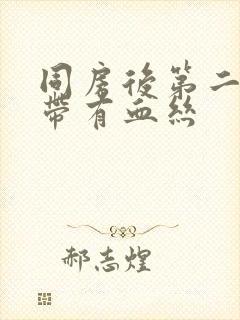 同房後第二
帶有血絲
郝志煌